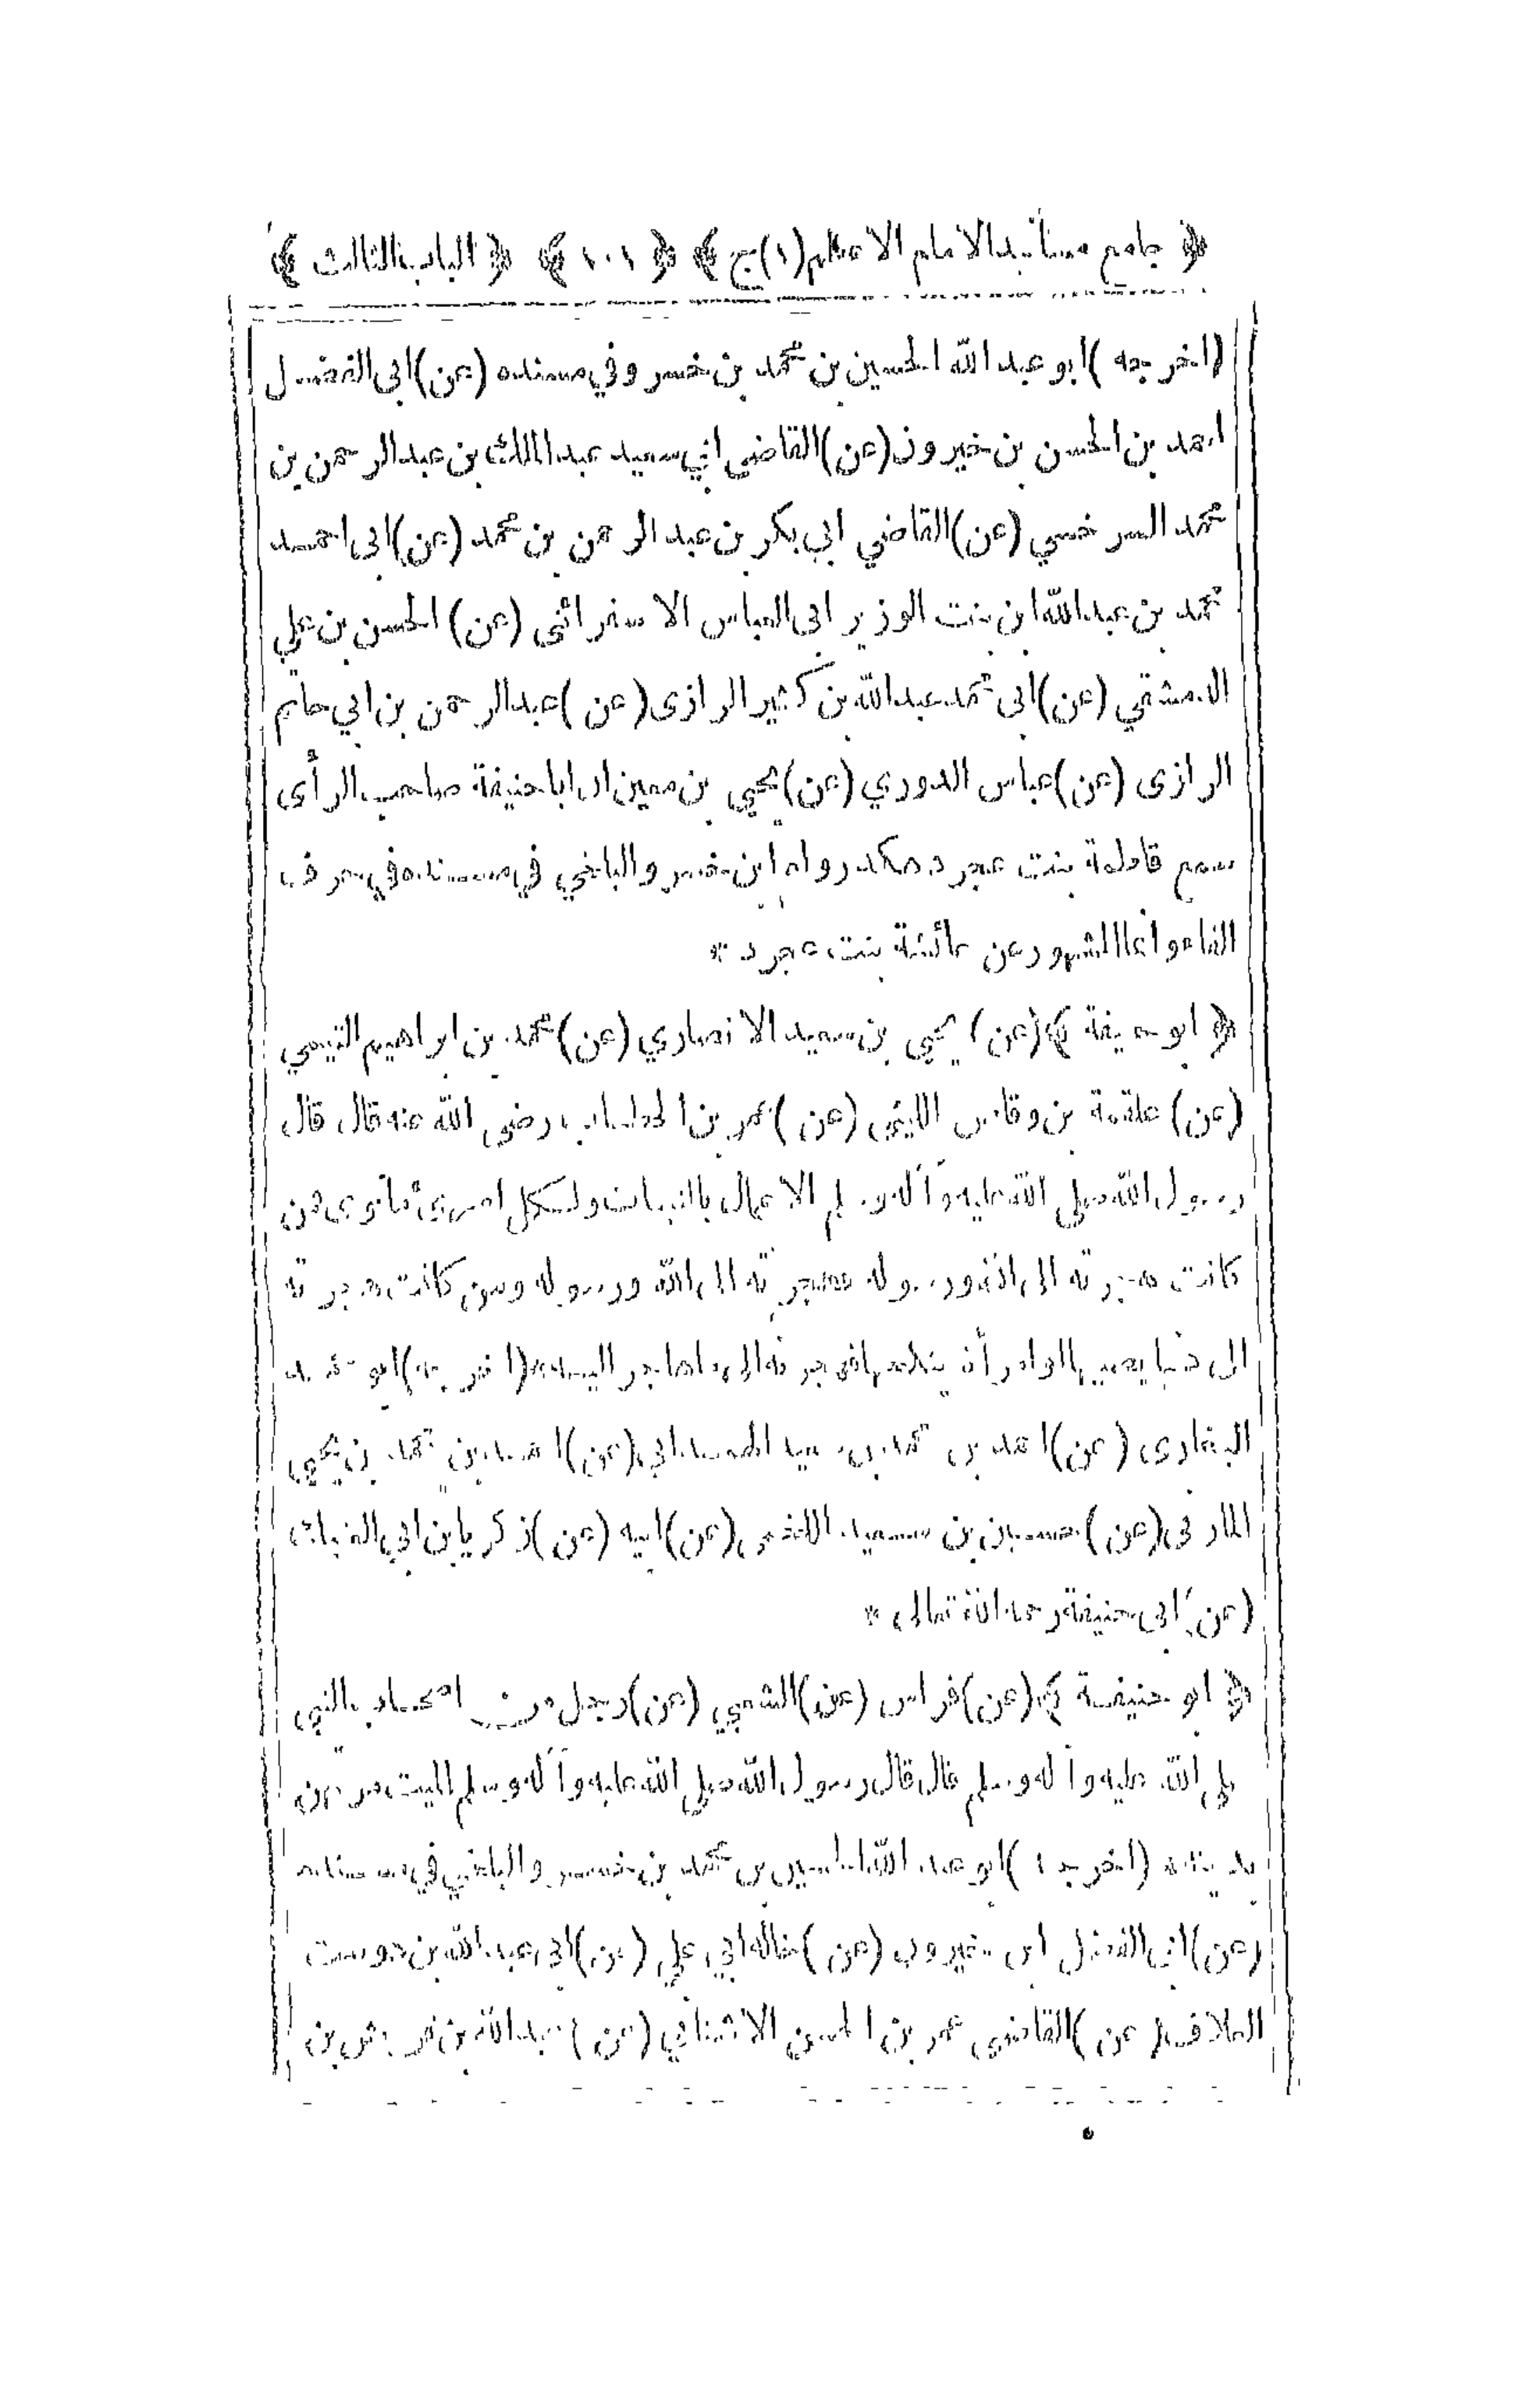 ﴿ جامع مسانيد الامام الاعظم (١) ج ﴾ ﴿ ١٠١ ﴾ ﴿ الباب الثالث ﴾
(اخرجه) ابو عبد الله الحسين بن محمد بن خسرو في مسنده (عن) ابى الفضل
احمد بن الحسن بن خيرون (عن) القاضي ابي سعيد عبد الملك بن عبد الرحمن بن
محمد السرخسي (عن) القاضي ابي بكر بن عبد الرحمن بن محمد (عن) ابى احمد
محمد بن عبد الله ابن بنت الوزير ابى العباس الاسفرائنى (عن) الحسن بن علي
الدمشقي (عن) ابى محمد عبد الله بن كثير الرازى (عن) عبد الرحمن بن ابي حاتم
الرازى (عن) عباس الدوري (عن) يحيى بن معين ان ابا حنيفة صاحب الرأى
سمع فاطمة بنت عجرد هكذا رواه ابن خسرو والبلخي في مسنده في حرف
الفاء وانما المشهور عن عائشة بنت عجرد *
﴿ ابو حنيفة ﴾ (عن) يحيى بن سعيد الانصاري (عن) محمد بن ابراهيم التيمي
(عن) علقمة بن وقاص الليثي (عن) عمر بن الخطاب رضى الله عنه قال قال
رسول الله صلى الله عليه وآله وسلم الاعمال بالنيات ولكل امرئ ما نوى فمن
كانت هجرته الى الله ورسوله فهجرته الى الله ورسوله ومن كانت هجرته
الى دنيا يصيبها او امرأة ينكحها فهجرته الى ما هاجر اليه * (اخرجه) ابو محمد
البخارى (عن) احمد بن محمد بن سعيد الهمدانى (عن) احمد بن محمد بن يحيى
(عن) حسين بن سعيد اللخمى (عن) ابيه (عن) زكريا بن ابي
(عن) ابى حنيفة رحمه الله تعالى *
﴿ ابو حنيفة ﴾ (عن) فراس (عن) الشعبي (عن) رجل من اصحاب النبي
صلى الله عليه وآله وسلم قال قال رسول الله صلى الله عليه وآله وسلم الميت
(اخرجه) ابو عبد الله الحسين بن محمد بن خسرو والبلخي في مسنده
(عن) ابى الفضل ابن خيرون (عن) خاله ابي علي (عن) ابى عبد الله بن دوست
العلاف (عن) القاضى عمر بن الحسن الاشنانى (عن) عبد الله بن بن